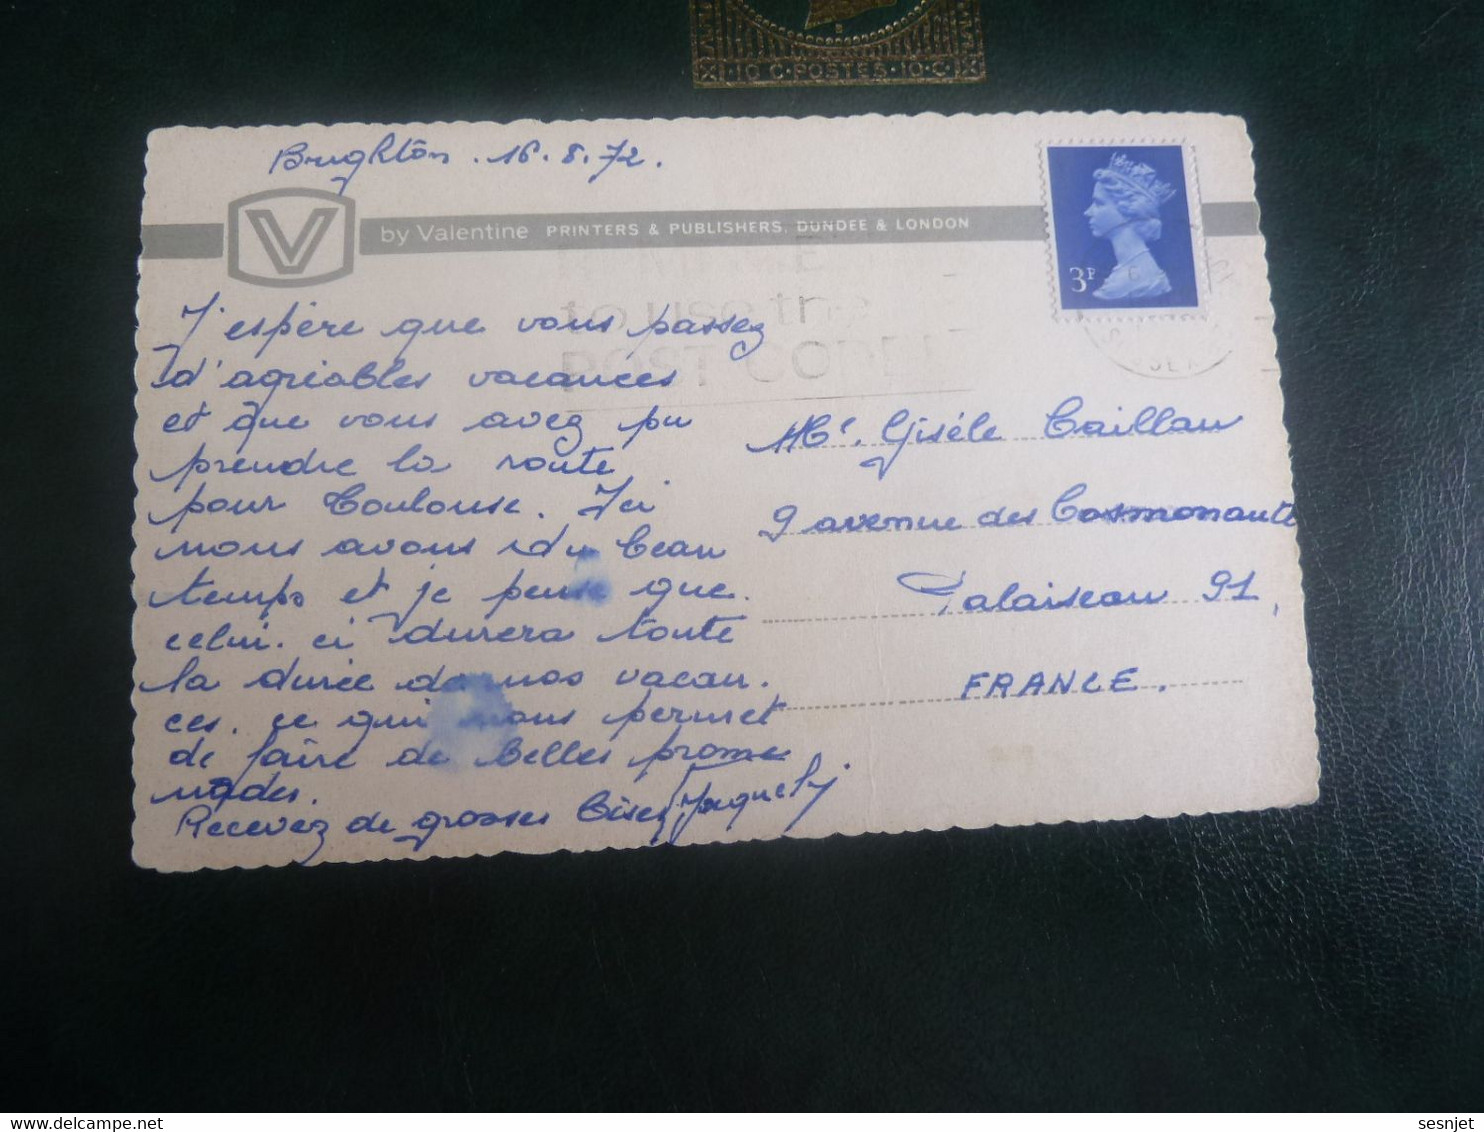 10 C · POSTES · 10 C
Brighton . 16. 8. 72.
V by Valentine PRINTERS & PUBLISHERS, DUNDEE & LONDON
to use the
POST CODE
3P
J'espère que vous passez
d'agréables vacances
et que vous avez pu
prendre la route
pour Toulouse. Ici
nous avons du beau
temps et je pense que
celui-ci durera toute
la durée de nos vacan-
ces. ce qui nous permet
de faire de belles prome
nades.
Recevez de grosses bises
Gisèle Caillau
9 avenue des Cosmonautes
Palaiseau 91,
FRANCE.
sesnjet